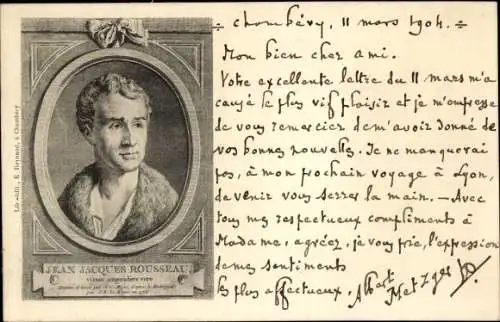 Chambéry, 11 mars 1904.
Mon bien cher ami.
Votre excellente lettre du 11 mars m'a
causé le plus vif plaisir et je m'empresse
de vous remercier de m'avoir donné de
vos bonnes nouvelles. Je ne manquerai
pas, à mon prochain voyage à Lyon,
de venir vous serrer la main. — Avec
tous mes respectueux compliments à
Madame, agréez, je vous prie, l'expression
de mes sentiments
les plus affectueux. Albert
Metzger
JEAN JACQUES ROUSSEAU
Lib. édit., à Chambéry